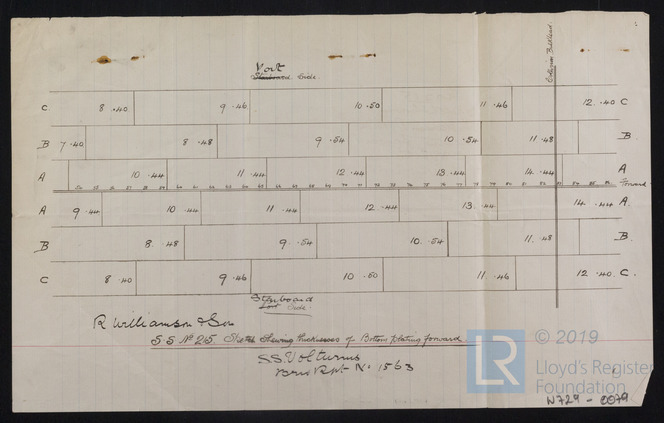 Port
Starboard Side.
Collision Bulkhead.
C 8 .40 9 .46 10 .50 11 .46 12 .40 C
B 7 .40 8 .48 9 .54 10 .54 11 .48 B.
A 10 .44 11 .44 12 .44 13 .44 14 .44 A
Forward.
A 9 .44 10 .44 11 .44 12 .44 13 .44 14 .44 A.
B 8 .48 9 .54 10 .54 11 .48 B.
C 8 .40 9 .46 10 .50 11 .46 12 .40. C.
Starboard
Port Side.
R Williamson & Son
S S No 25. Sketch Shewing thicknesses of Bottom plating forward.
S.S. Volturnus
Rpt No 1563
© 2019
LR
Lloyd's Register
Foundation
W729 - 0079